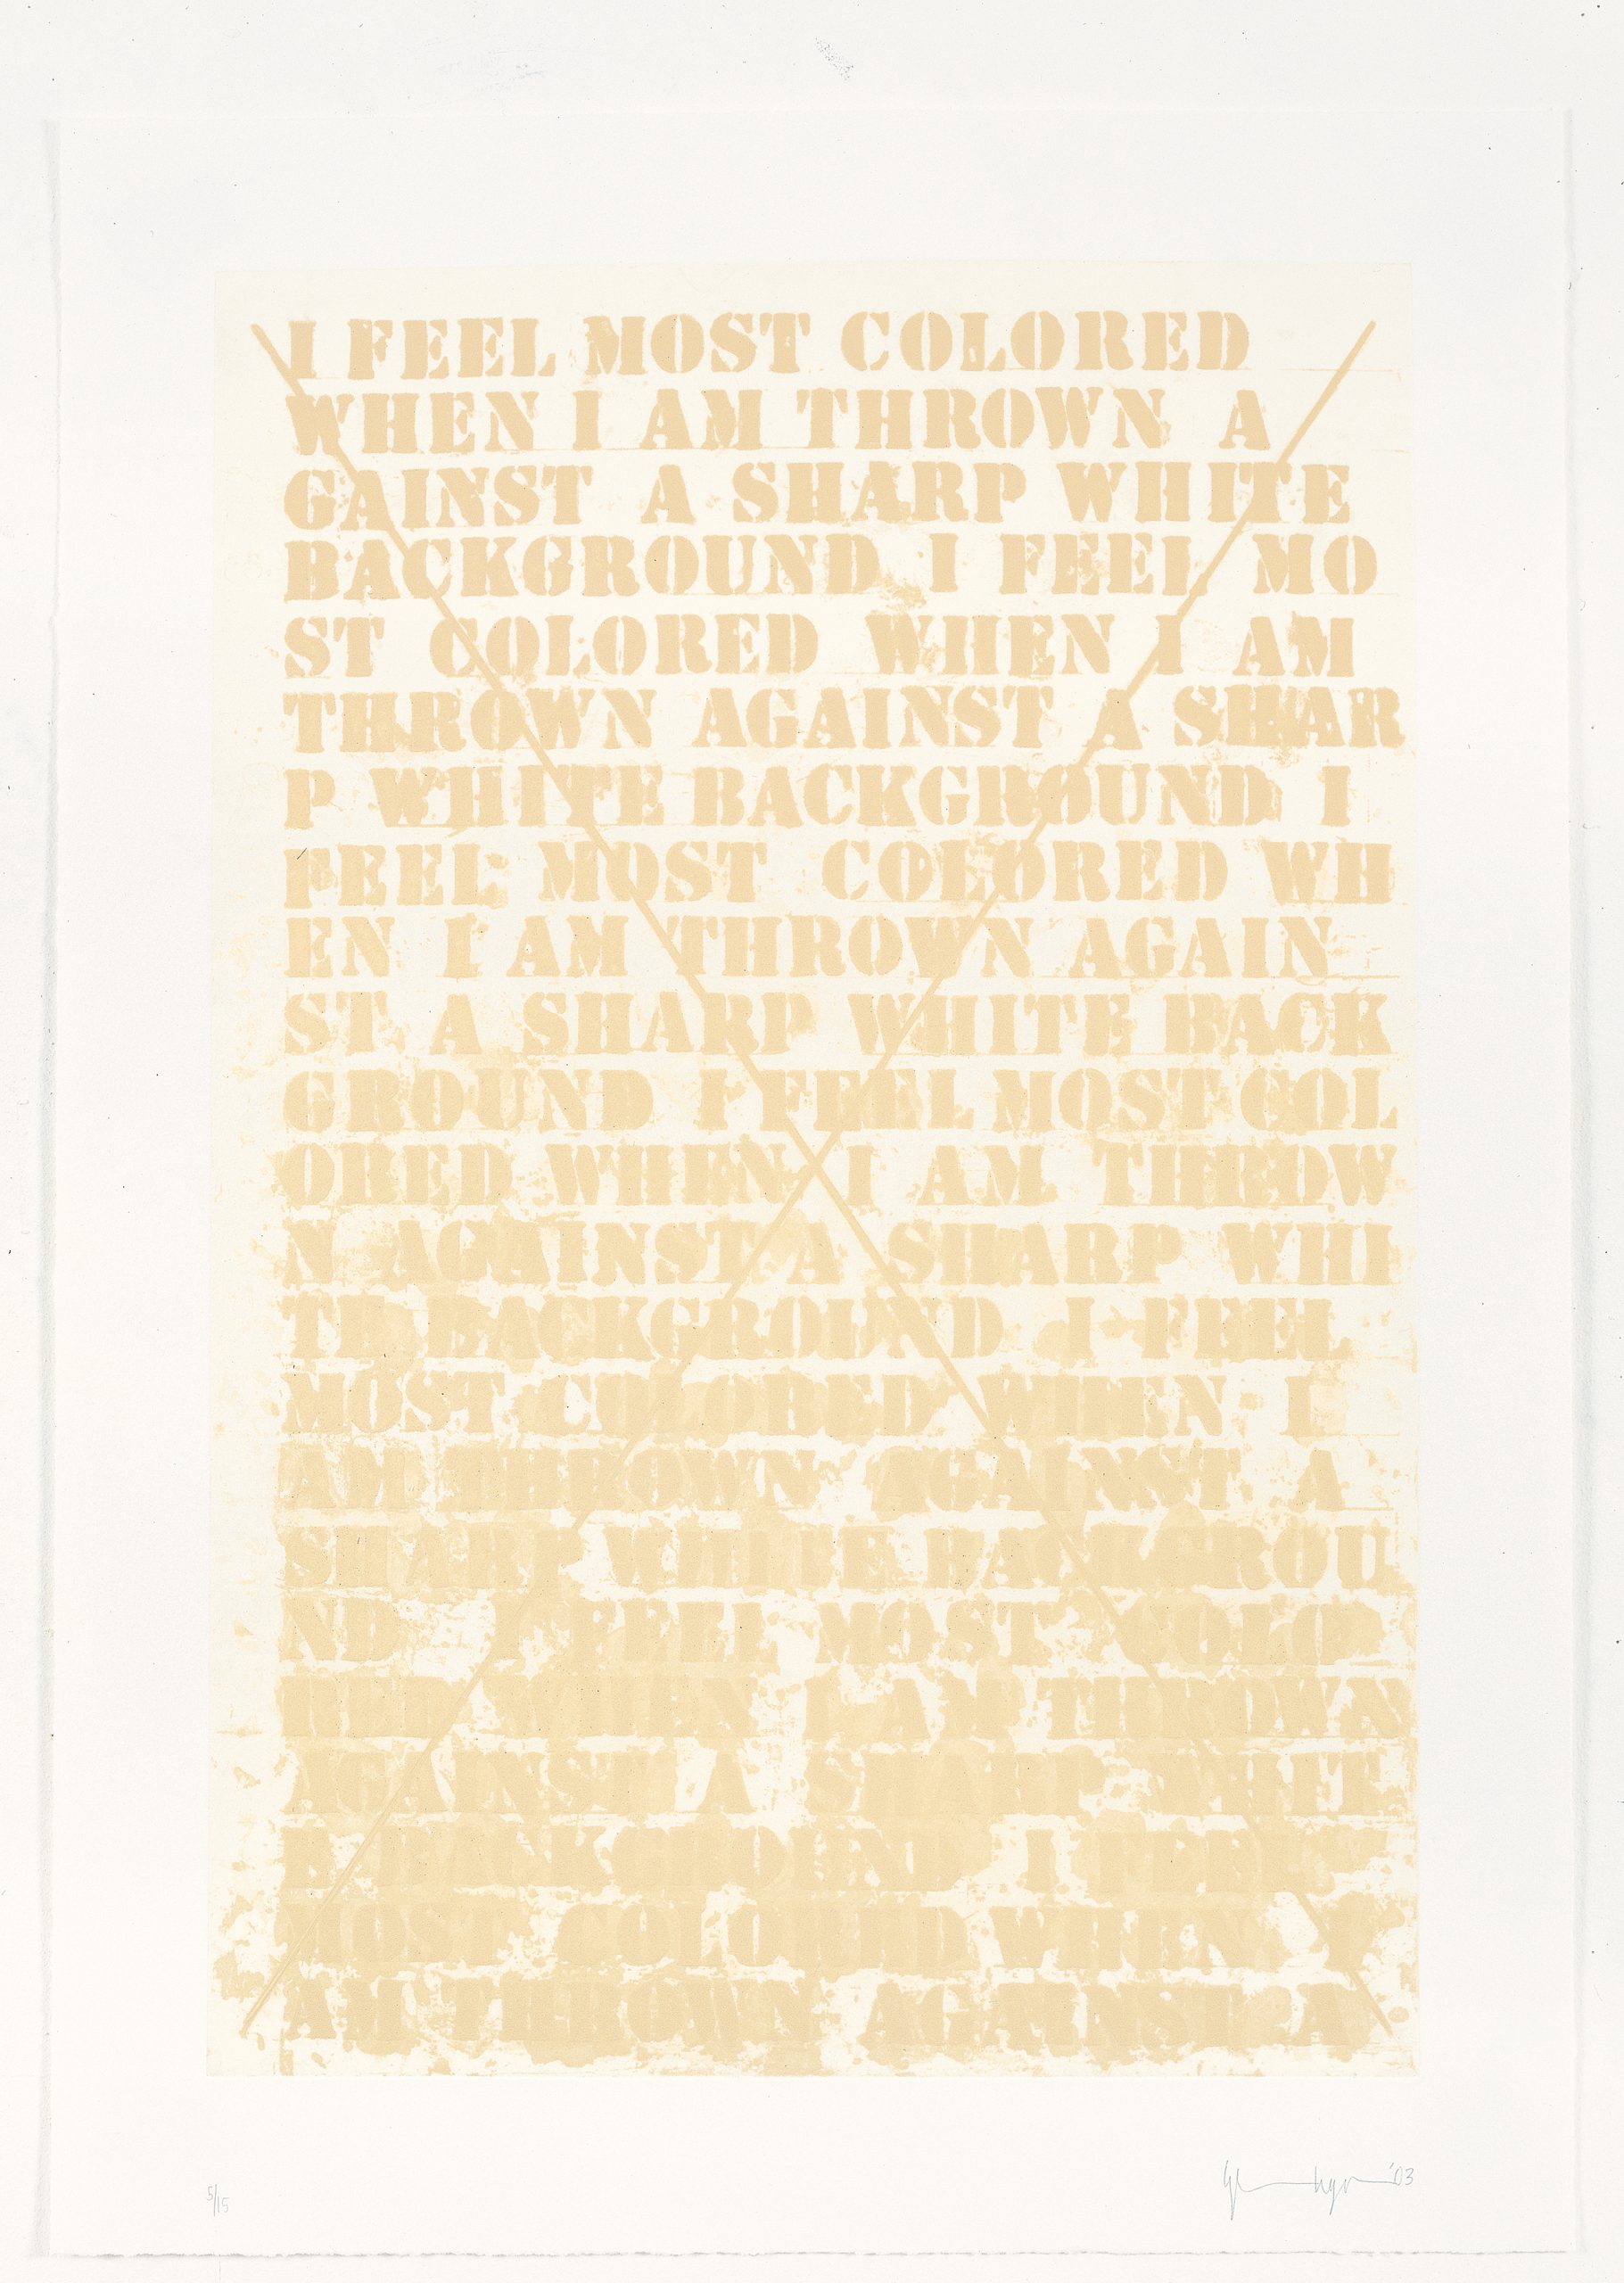 I FEEL MOST COLORED
WHEN I AM THROWN A
GAINST A SHARP WHITE
BACKGROUND I FEEL MO
ST COLORED WHEN I AM
THROWN AGAINST A SHAR
P WHITE BACKGROUND I
FEEL MOST COLORED WH
EN I AM THROWN AGAIN
ST A SHARP WHITE BACK
GROUND I FEEL MOST COL
ORED WHEN I AM THROW
N AGAINST A SHARP WHI
TE BACKGROUND I FEEL
MOST COLORED WHEN I
AM THROWN AGAINST A
SHARP WHITE BACKGROU
ND I FEEL MOST COLO
RED WHEN I AM THROWN
AGAINST A SHARP WHIT
E BACKGROUND I FEEL
MOST COLORED WHEN I
AM THROWN AGAINST A
5/15
'03